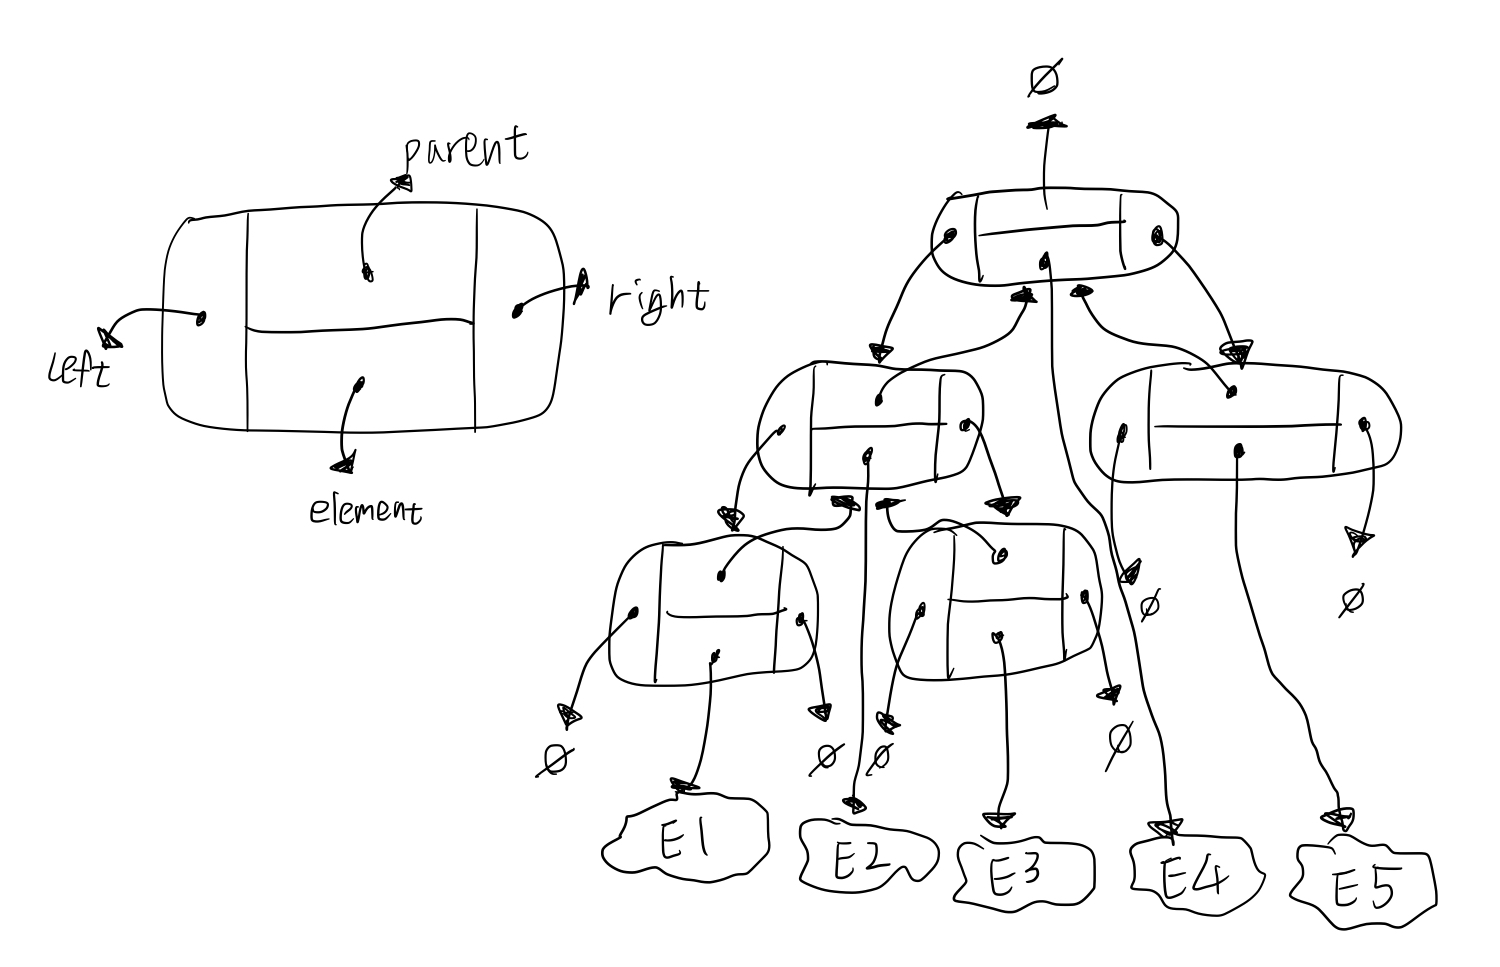 parent
left
right
element
Ø
Ø
Ø
Ø
Ø
Ø
Ø
Ø
E1
E2
E3
E4
E5